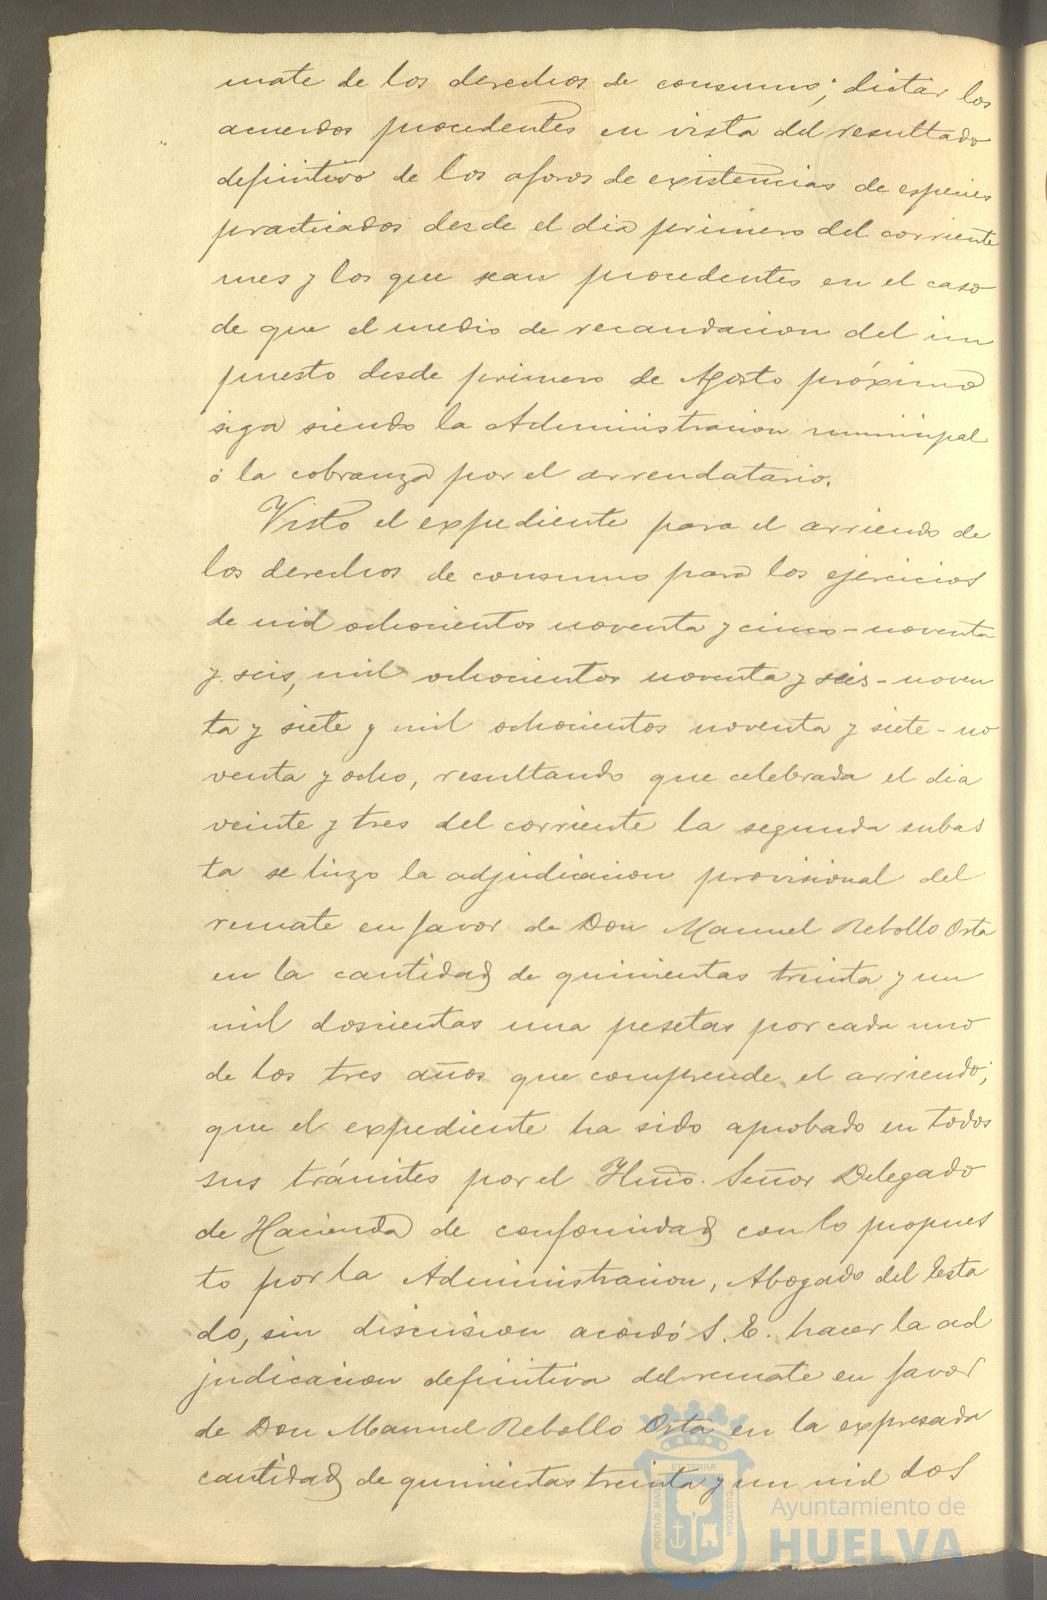 mate de los derechos de consumos; dictar los
acuerdos procedentes en vista del resultado
definitivo de los aforos de existencias de especies
practicados desde el dia primero del corriente
mes y los que sean procedentes en el caso
de que el medio de recaudacion del im
puesto desde primero de Agosto próximo
siga siendo la Administracion municipal
ó la cobranza por el arrendatario.
Visto el expediente para el arriendo de
los derechos de consumos para los ejercicios
de mil ochocientos noventa y cinco-noventa
y seis, mil ochocientos noventa y seis-noven
ta y siete y mil ochocientos noventa y siete-no
venta y ocho, resultando que celebrada el dia
veinte y tres del corriente la segunda subas
ta se hizo la adjudicacion provisional del
remate en favor de Don Manuel Rebollo Orta
en la cantidad de quinientas treinta y un
mil doscientas una pesetas por cada uno
de los tres años que comprende el arriendo;
que el expediente ha sido aprobado en todos
sus trámites por el Ylmo. Señor Delegado
de Hacienda de conformidad con lo propues
to por la Administracion, Abogado del Esta
do, sin discusion acordó S. E. hacer la ad
judicacion definitiva del remate en favor
de Don Manuel Rebollo Orta en la expresada
cantidad de quinientas treinta y un mil dos
PORTUS MARIS ET TERRÆ CUSTODIA
Ayuntamiento de
HUELVA